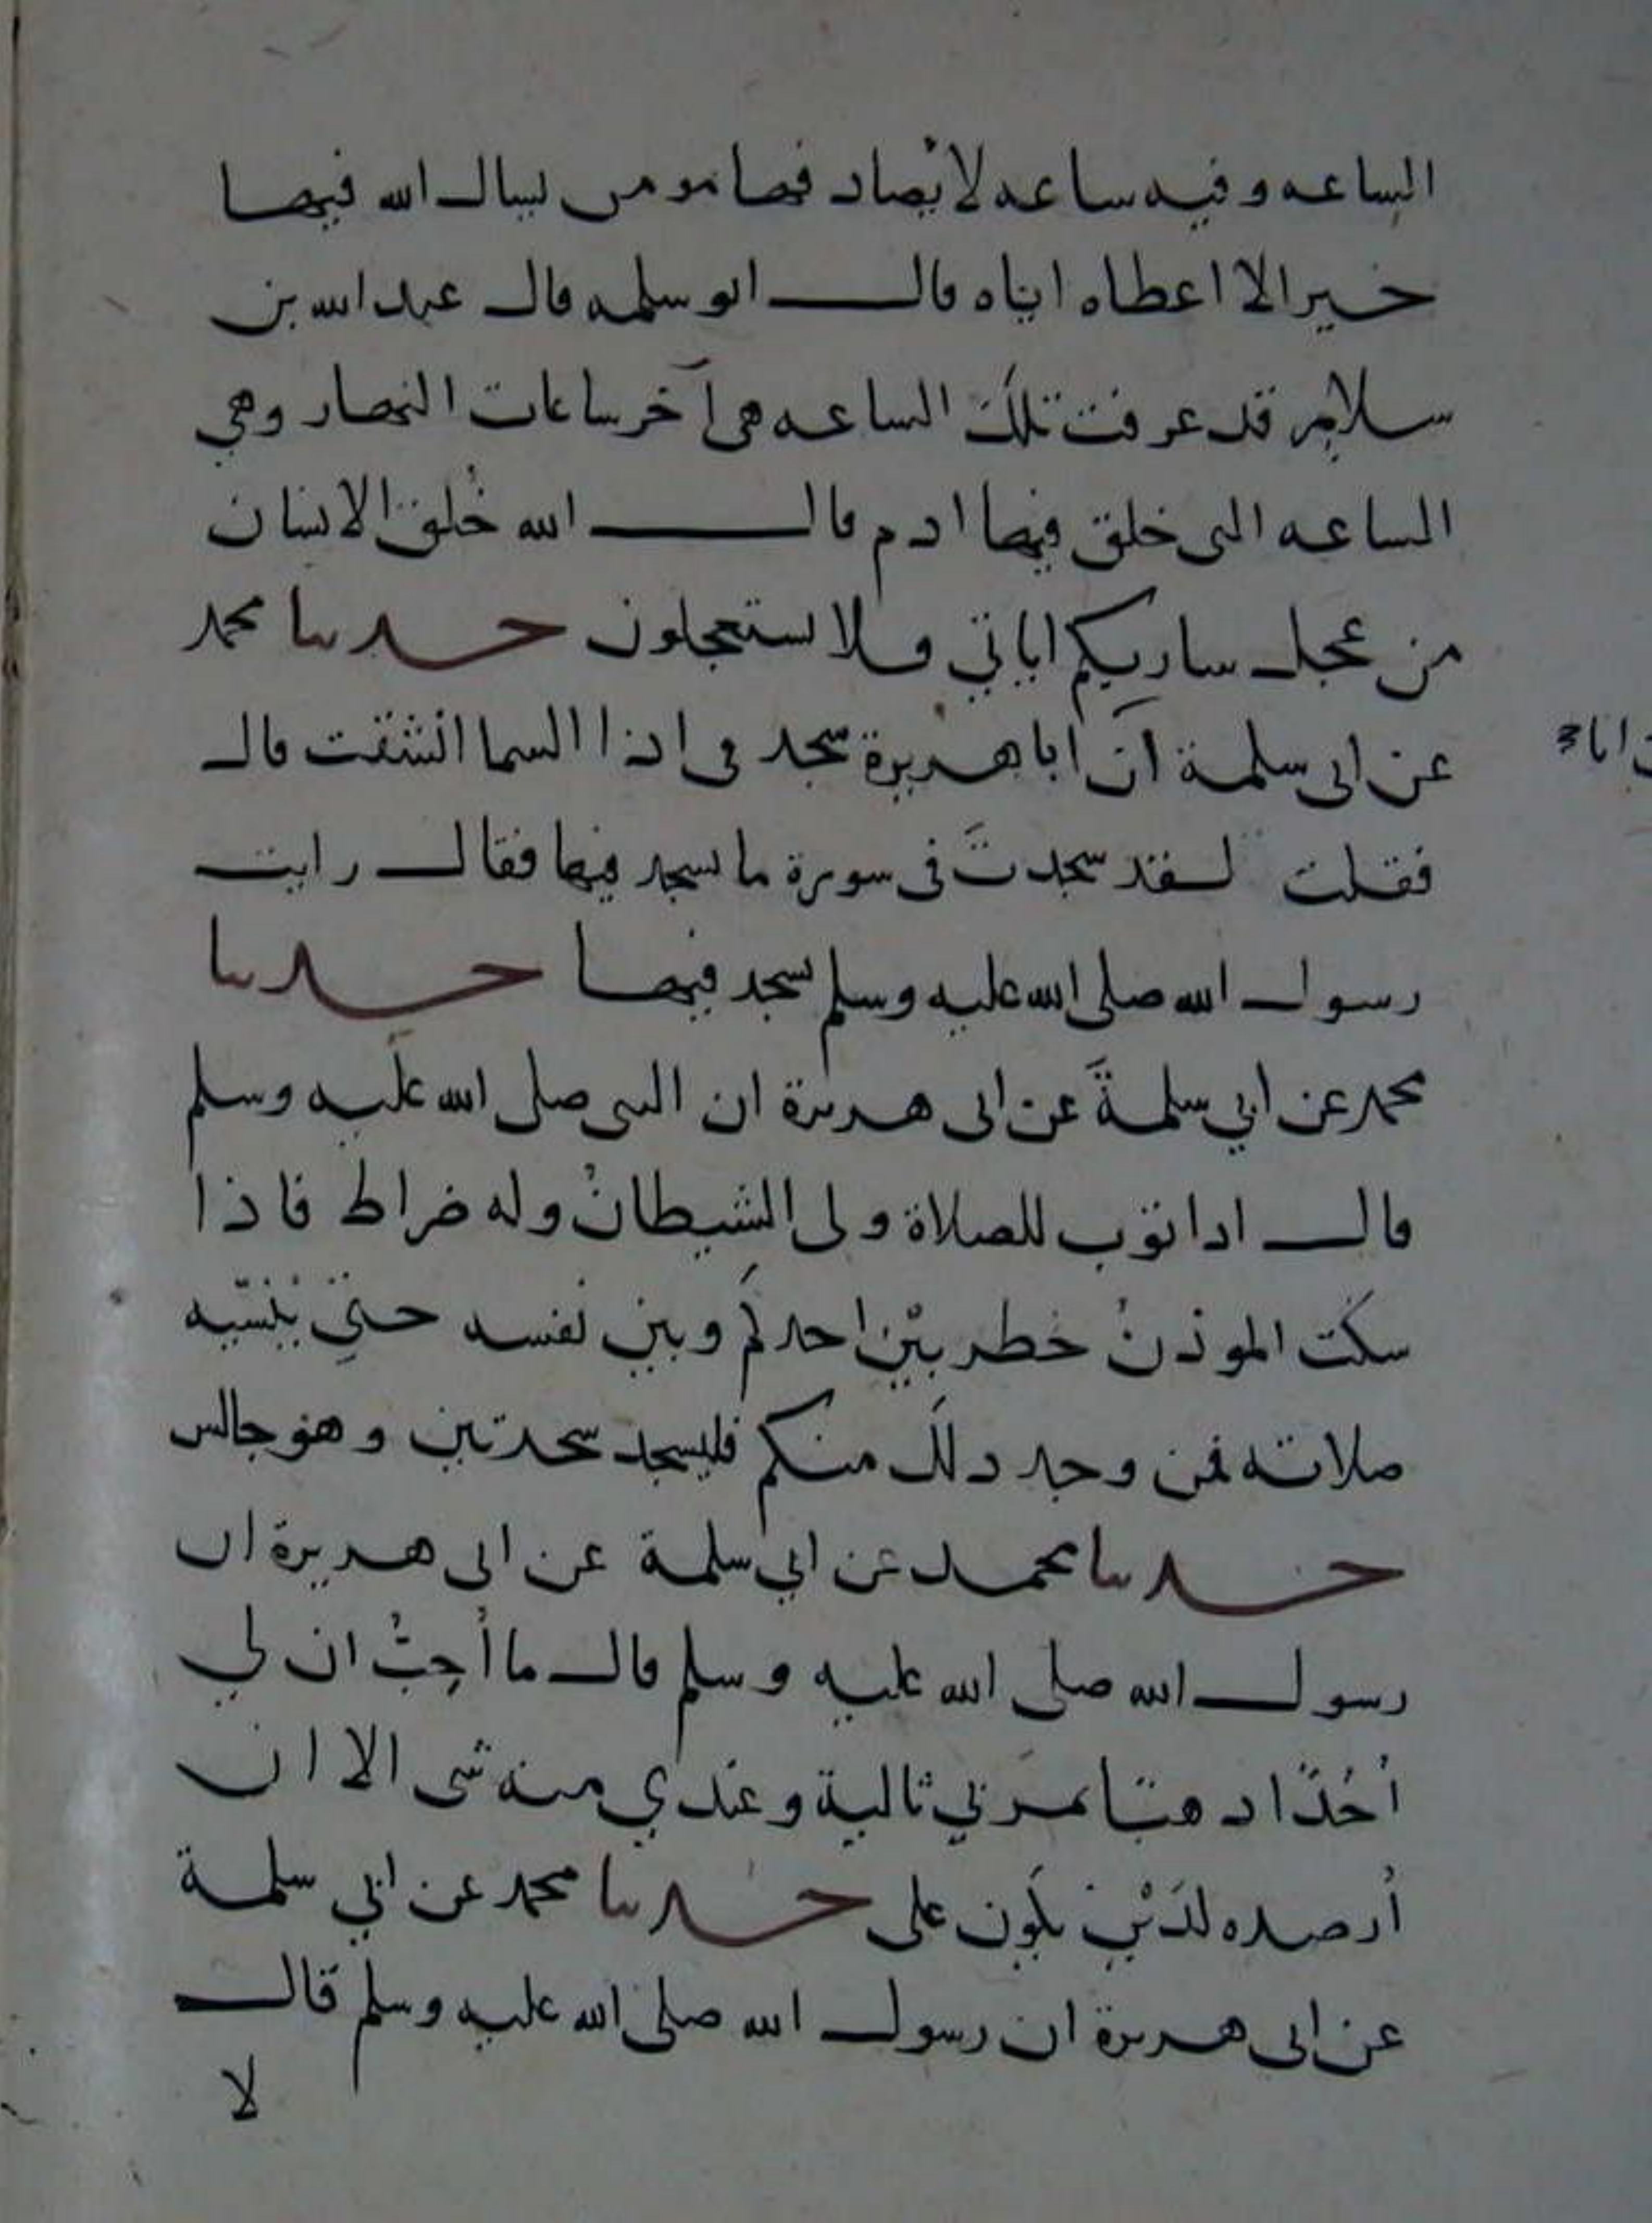 الساعه وفيه ساعه لا يصاد فها مومن يسال الله فيها
خيرا الا اعطاه اياه قال ابو سلمه قال عبد الله بن
سلام قد عرفت تلك الساعه هي آخر ساعات النهار وهي
الساعه التى خلق فيها ادم قال الله خُلق الانسان
من عجل ساريكم اياتي فلا تستعجلون حدثنا محمد
عن ابى سلمة ان ابا هريرة سجد فى اذا السما انشقت قال
فقلت لقد سجدتَ فى سورة ما يسجد فيها فقال رايت
رسول الله صلى الله عليه وسلم يسجد فيها حدثنا
محمد عن ابي سلمةَ عن ابى هريرة ان النبى صلى الله عليه وسلم
قال اذا ثوّب للصلاة ولى الشيطانُ وله ضراط فاذا
سكت الموذنُ خطر بيْن احدكم وبين نفسه حتي يُنسّيه
صلاته فمن وجد ذلك منكم فليسجد سجدتين وهو جالس
حدثنا محمد عن ابي سلمة عن ابى هريرة ان
رسول الله صلى الله عليه وسلم قال ما أُحِبُّ ان لي
أُحُدًا ذهبًا يمر بي ثالثة وعندي منه شى الا ان
أرصده لدَيْنٍ يكون على حدثنا محمد عن ابي سلمة
عن ابى هريرة ان رسول الله صلى الله عليه وسلم قال
لا